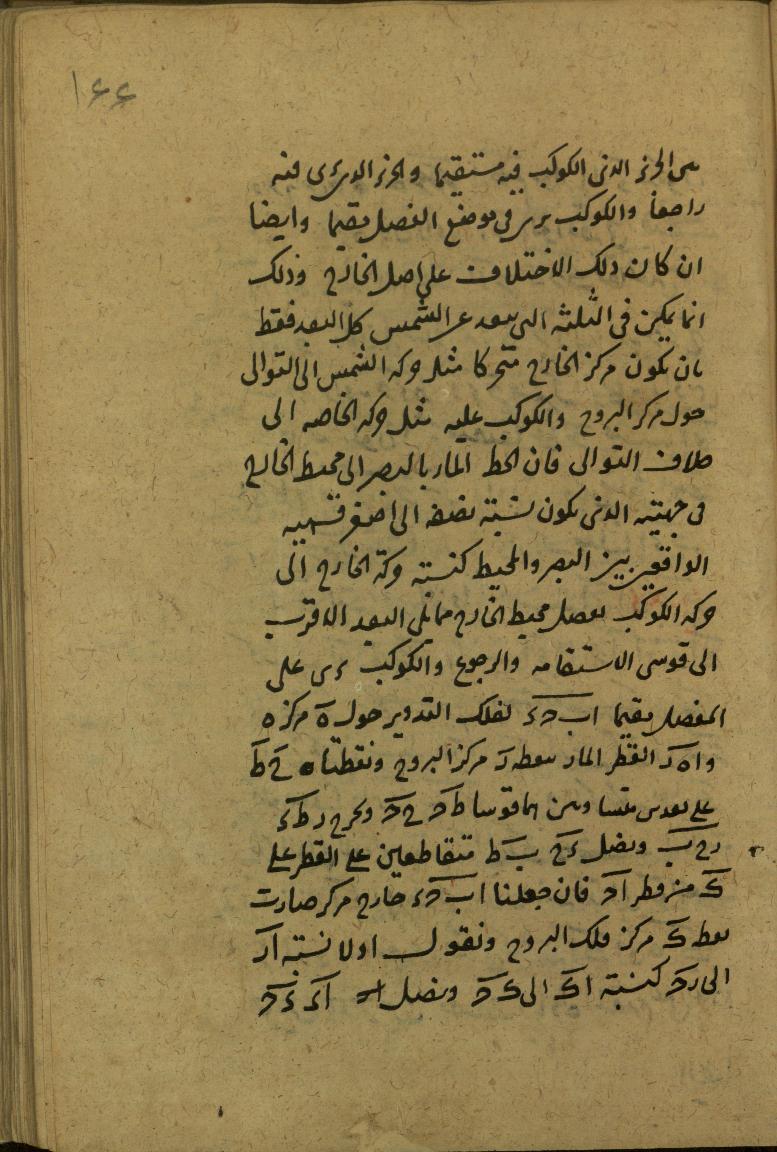 ١٤٤
بين الجزء الذى الكوكب فيه مستقيما والجزء الذى يرى فيه
راجعا والكوكب يرى فى موضع الفصل مقيما وايضا
ان كان ذلك الاختلاف على اصل الخارج وذلك
انما يمكن فى الثلثه التى يبعد عن الشمس كل البعد فقط
بان يكون مركز الخارج متحركا مثل حركه الشمس الى التوالى
حول مركز البروج والكوكب عليه مثل حركه الخاصه الى
خلاف التوالى فان الخط المار بالبصر الى محيط الخارج
فى جهتيه الذى يكون نسبة نصفه الى اصغر قسميه
الواقعين بين البصر والمحيط كنسبة حركة الخارج الى
حركه الكوكب يفصل محيط الخارج مما يلى البعد الاقرب
الى قوسى الاستقامه والرجوع والكوكب يرى على
المفصل مقيما ا ب ح ء لفلك التدوير حول ه مركز ه
وا ه ح ر القطر المار بنقطه ر مركز البروج ونقطتا ح ط
على بعدين متساويين هما قوسا ط ح ح ح ونخرج ر ط ء
ر ح ب ونصل ء ح ب ط متقاطعين على القطر على
ك من قطر ا ح فان جعلنا ا ب ح ء خارج مركز صارت
نقطه ك مركز فلك البروج ونقول اولا نسبة ا ر
الى ر ح كنسبة ا ك الى ك ح ونصل ا ء ء ح